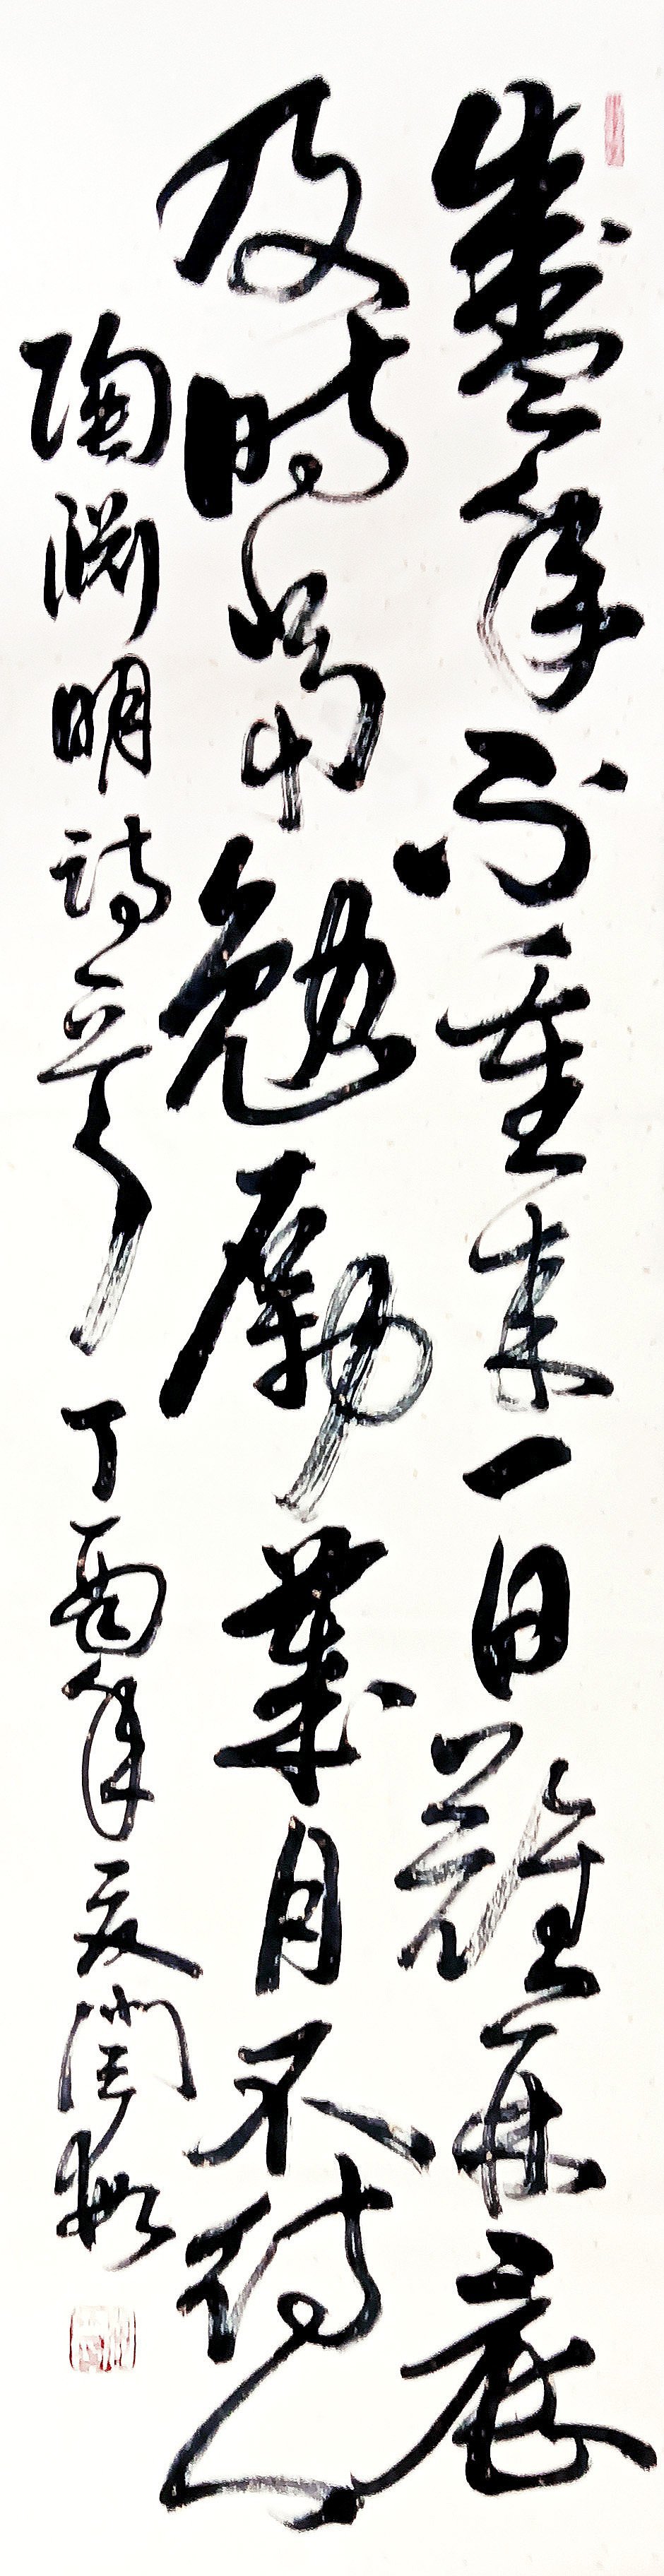 盛年不重来一日難再晨
及時當勉勵歲月不待人
陶渊明詩 丁酉年夏